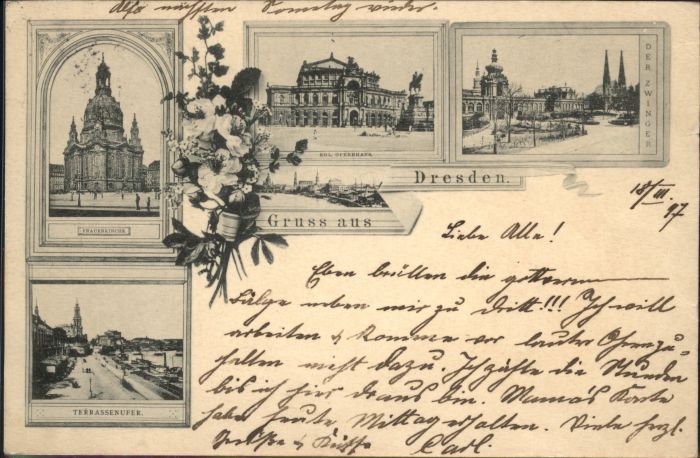 Also nächsten Sonntag wieder.
FRAUENKIRCHE.
KGL. OPERNHAUS.
DER ZWINGER
Gruss aus
Dresden.
TERRASSENUFER.
18/III.
97
Liebe Alle!
Eben brüllen die gottverm
Bälge neben mir zu dritt!!! Ich will
arbeiten & komme vor lauter Ohrenzu-
halten nicht dazu. Ich zähle die Stunden
bis ich hier draus bin. Mama's Karte
habe heute Mittag erhalten. Viele herzl.
Grüße & Küsse Carl.